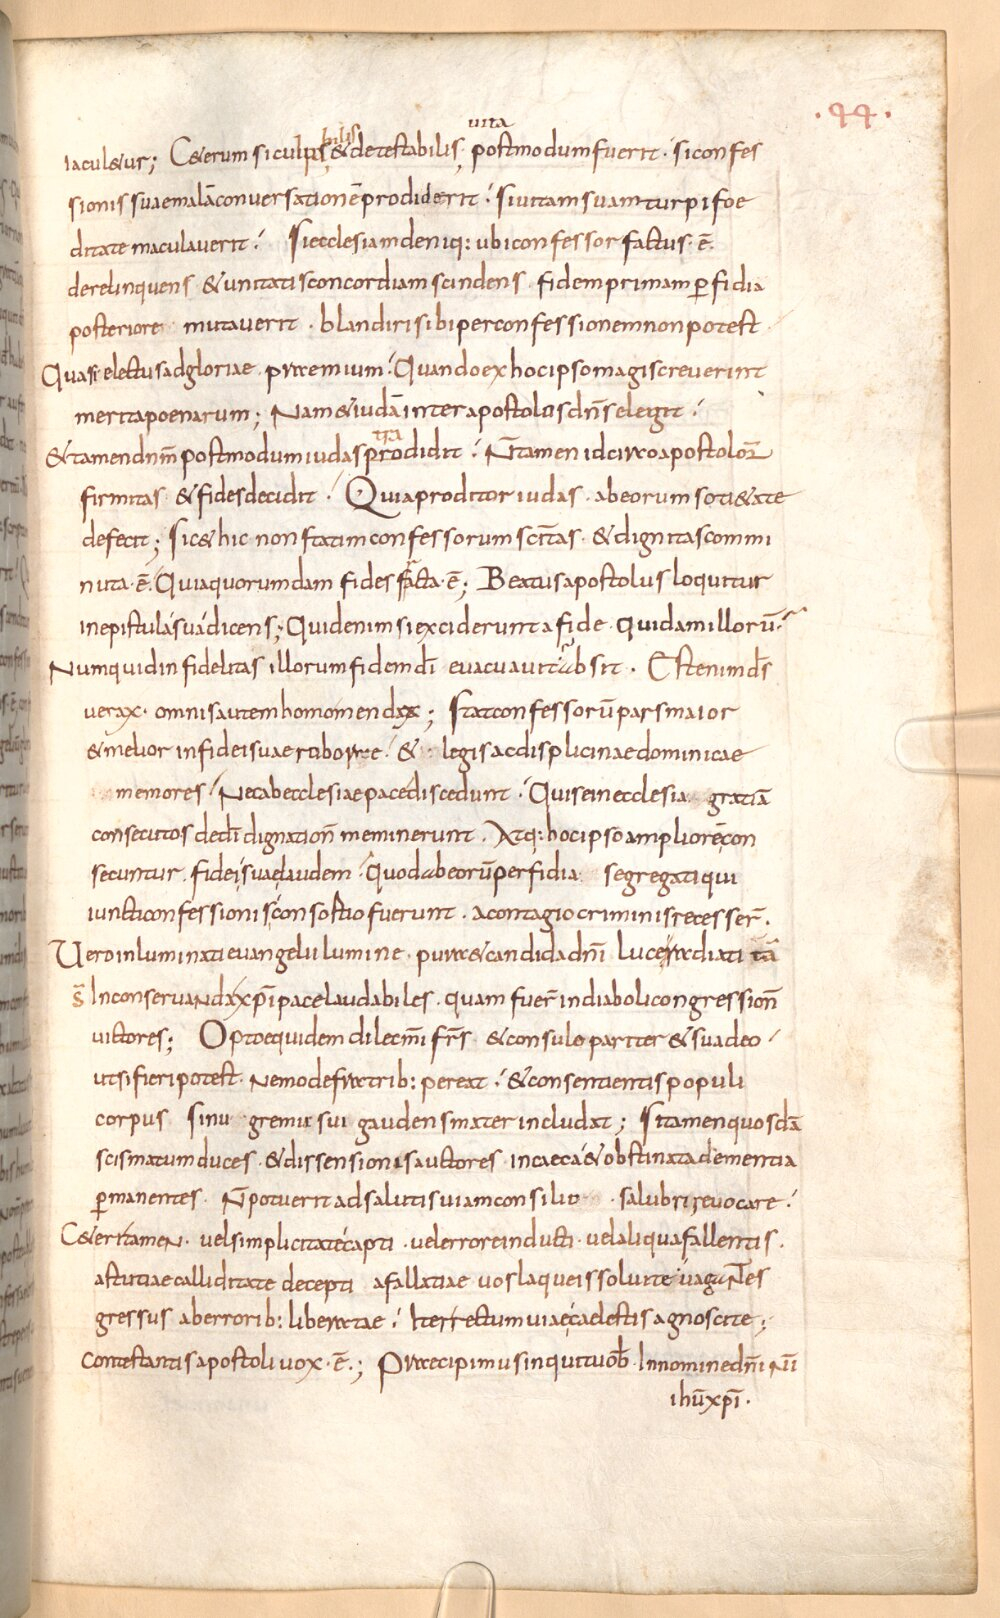 ·44·
uita
iacul&ur; C&erum si culpabilis & detestabilis postmodum fuerit. si confes
sionis suae malā conuersationē prodiderit. si uitam suam turpi foe
ditate maculauerit. Si ecclesiam deniq: ubi confessor factus ·ē·
derelinquens & unitatis concordiam scindens fidem primam ꝑfidia
posteriore mutauerit. blandiri sibi per confessionem non potest
Quasi electus ad gloriae praemium. Quando ex hoc ipso magis creuerint
merita poenarum; Nam & iudā inter apostolos dn̄s elegit.
& tamen dn̄m postmodum iudas prodidit. N̄ tamen idcirco apostolorꝫ
firmitas & fides decidit. Quia proditor iudas ab eorum soti&ate
defecit; Sic & hic non statim confessorum sc̄itas & dignitas commi
nuta ·ē· Quia quorumdam fides fracta ·ē·; Beatus apostolus loquitur
in epistula sua dicens; Quid enim si exciderunt a fide quidam illorū.
Numquid infidelitas illorum fidem dī euacuauit absit. Est enim ds̄
uerax. omnis autem homo mendax; Stat confessorū pars maior
& melior in fidei suae robore. & legis ac displicinae dominicae
memores. Nec ab ecclesiae pace discedunt. Qui se in ecclesia gratiā
consecutos de dī dignation̄ meminerunt. Atq: hoc ipso ampliorē con
secuntur fidei suae laudem. Quod ab eorū perfidia segregati qui
iuncti confessionis consostio fuerunt. a contagio criminis recesser̄.
Uero inluminati euangelii lumine. pura & candida dn̄i luce radiati tā
s̄ In conseruanda xp̄i pace laudabiles. quam fuer̄ in diaboli congression̄
uictores; Opto equidem dilecm̄i fr̄s & consulo pariter & suadeo
ut si fieri potest. nemo de fratrib: pereat. & consentientis populi
corpus sinu gremii sui gaudens mater includat; Si tamen quosdā
scismatum duces & dissensionis auctores in caeca & obstinata dementia
ꝑmanentes. N̄ potuerit ad salutis uiam consilio salubri reuocare.
C&eri tamen. uel simplicitate capti. uel errore inducti. uel aliqua fallentis.
astutiae calliditate decepti a fallatiae uos laqueis soluite uagantes
gressus ab errorib: liberatae. Iter rectum uiae caelestis agnoscite;
Contestantis apostoli uox ·ē·; Praecipimus inquit uob̄. In nomine dn̄i nr̄i
ihū xp̄i.